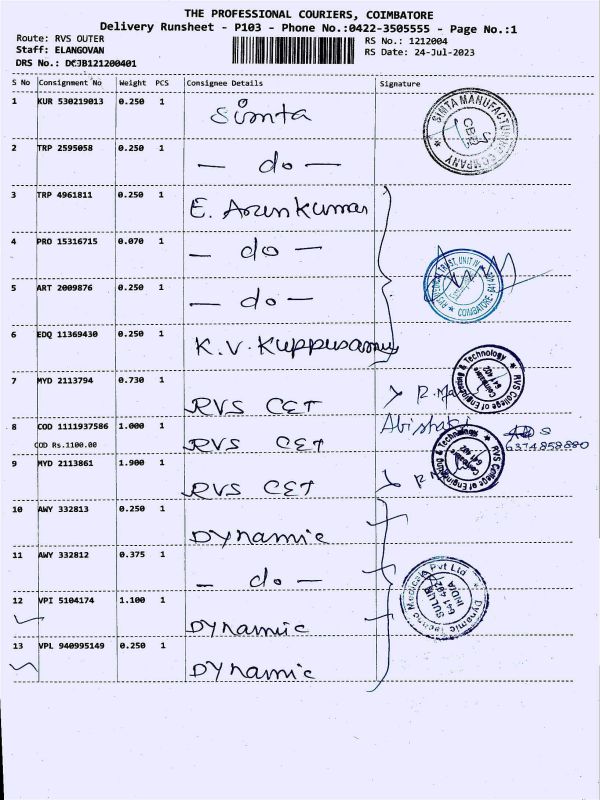 THE PROFESSIONAL COURIERS, COIMBATORE
Delivery Runsheet - P103 - Phone No.:0422-3505555 - Page No.:1
Route: RVS OUTER
RS No.: 1212004
Staff: ELANGOVAN
RS Date: 24-Jul-2023
DRS No.: DCJB121200401
S No Consignment No Weight PCS Consignee Details Signature
1 KUR 530219013 0.250 1 Simta
SIMTA MANUFACTURING COMPANY
CBE
2 TRP 2595058 0.250 1 — do —
3 TRP 4961811 0.250 1 E. Arunkumar
4 PRO 15316715 0.070 1 — do —
5 ART 2009876 0.250 1 — do —
TRUST, UNIT IV
COIMBATORE-641
6 EDQ 11369430 0.250 1 K.V. Kuppusamy
7 MYD 2113794 0.730 1 RVS CET
RVS College of Engineering & Technology
Coimbatore
641 402
8 COD 1111937586 1.000 1 RVS CET
COD Rs.1100.00
6374858880
9 MYD 2113861 1.900 1 RVS CET
RVS College of Engineering & Technology
Coimbatore
641 402
10 AWY 332813 0.250 1 Dynamic
11 AWY 332812 0.375 1 — do —
Dynamic Techno Medicals Pvt Ltd
SULUR
641 402
INDIA
12 VPI 5104174 1.100 1 Dynamic
13 VPL 940995149 0.250 1 Dynamic